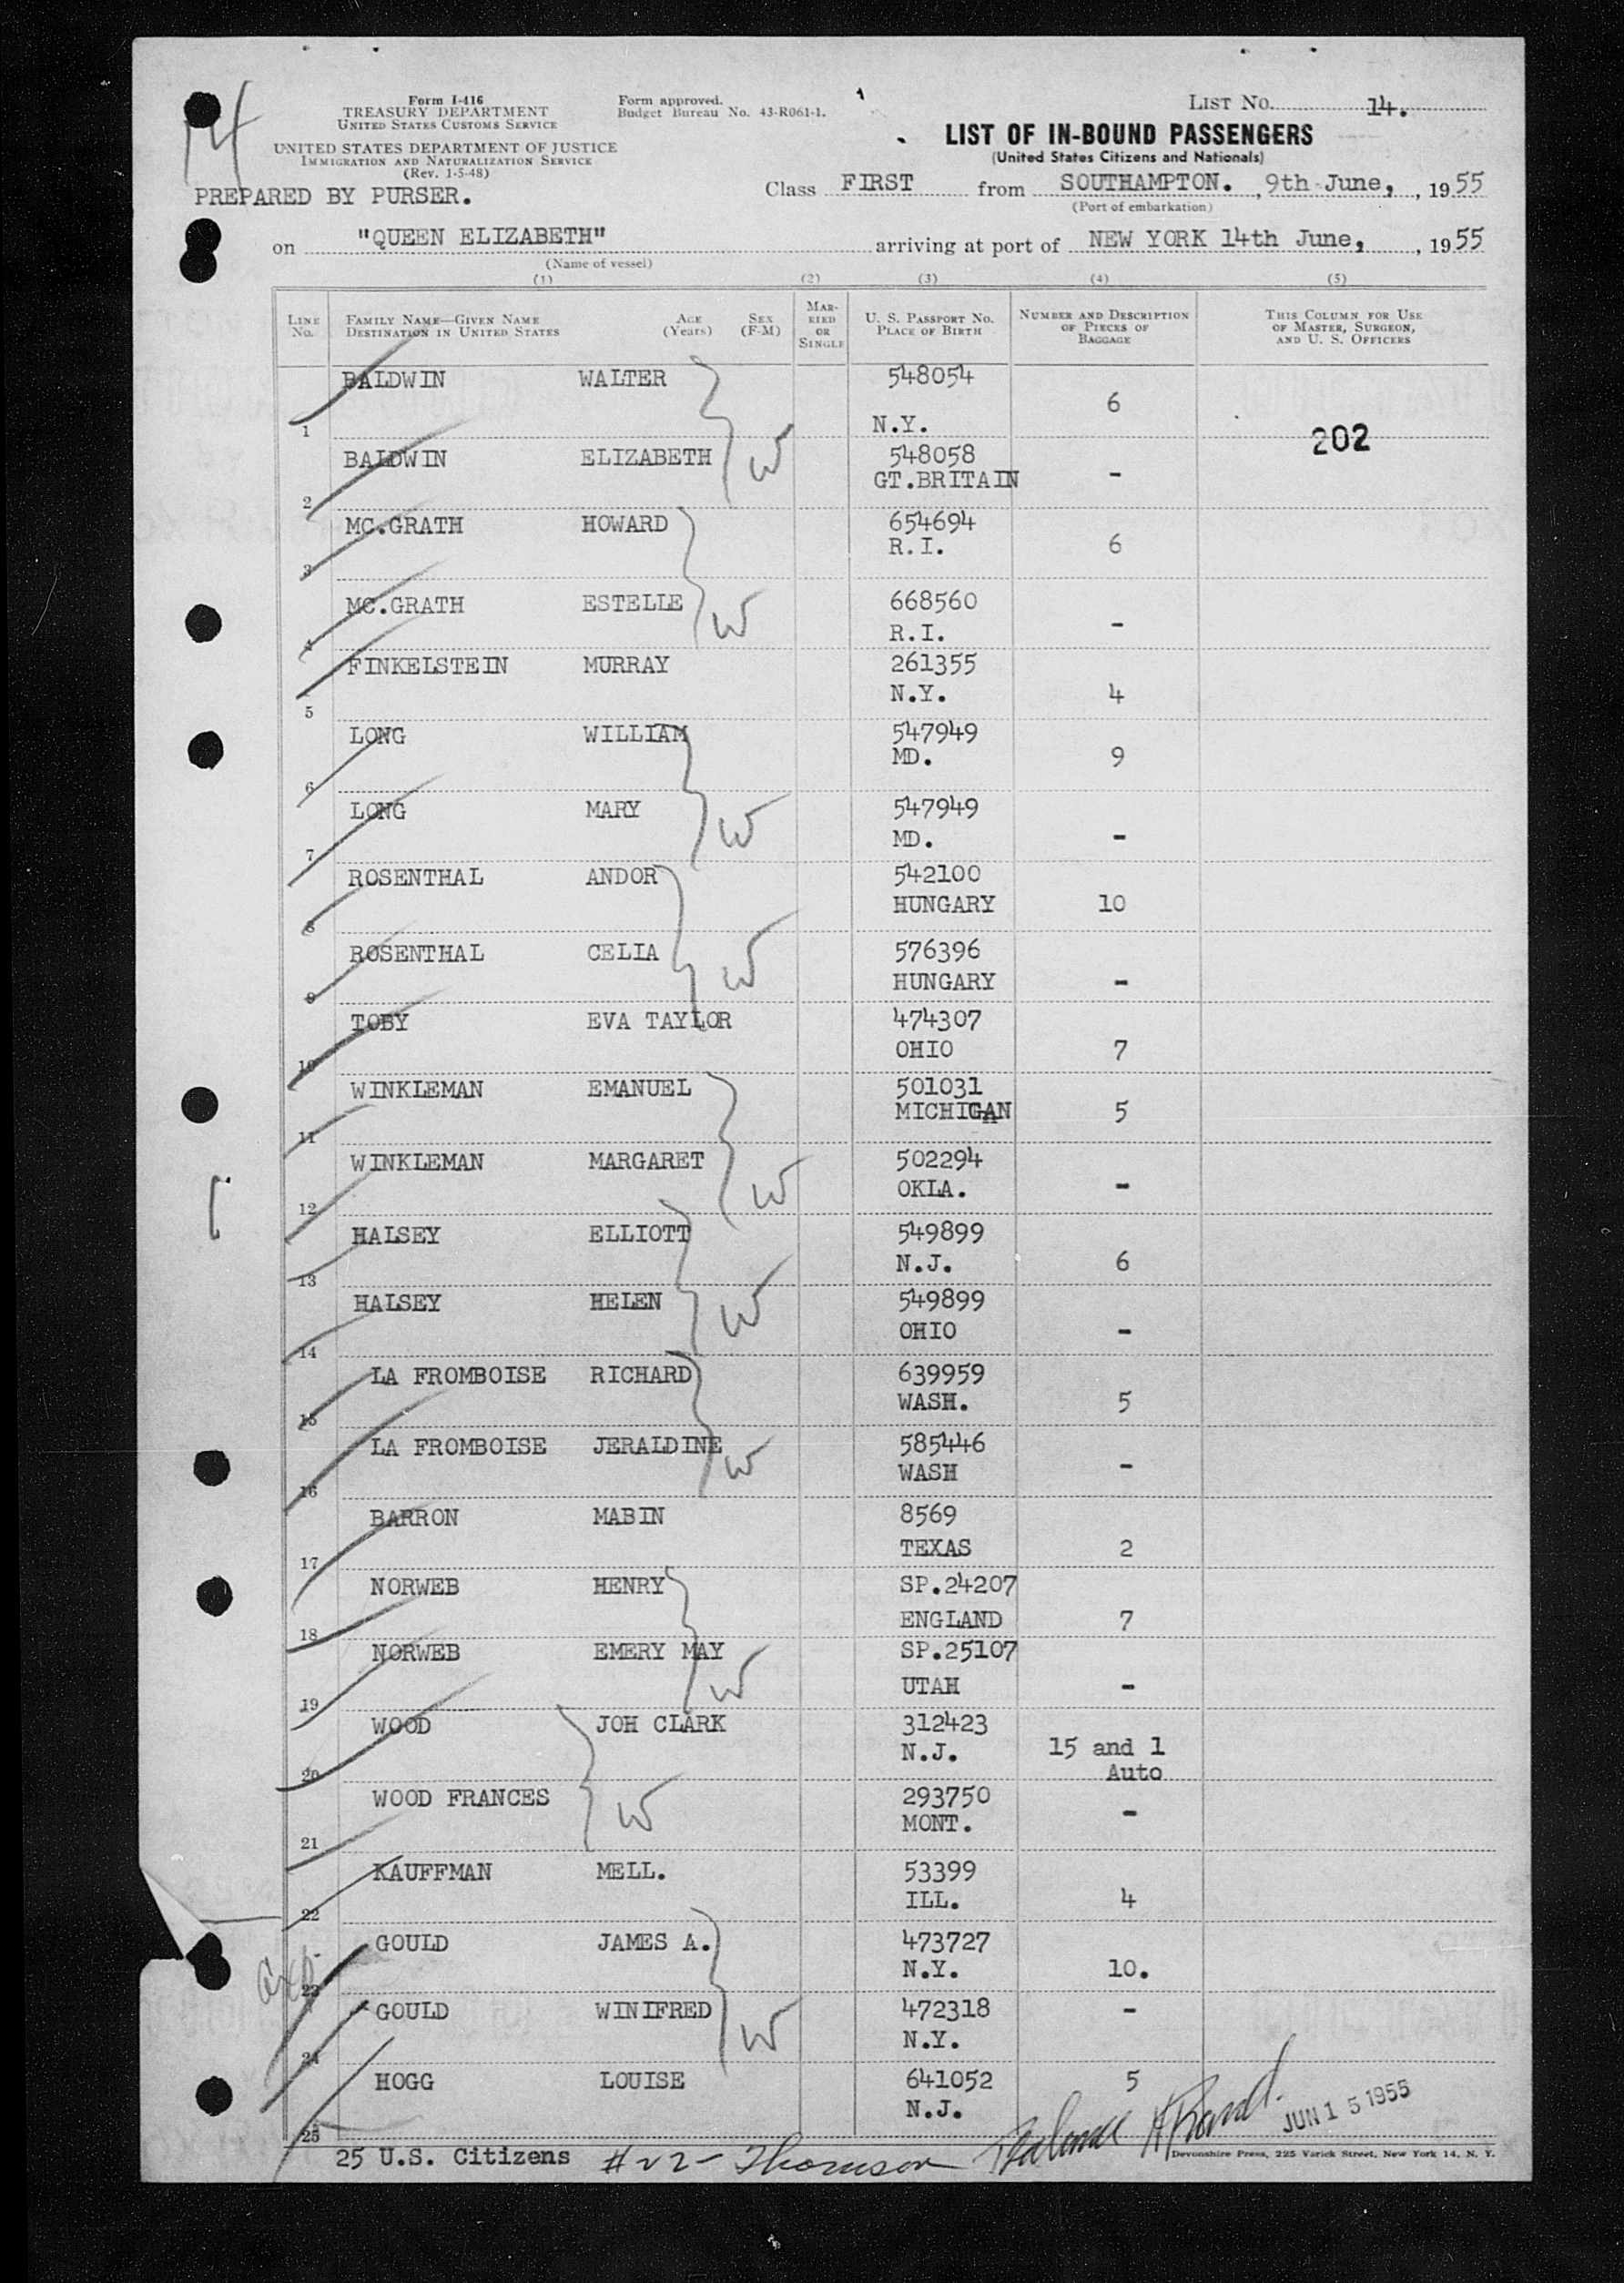 14
Form I-416
TREASURY DEPARTMENT
UNITED STATES CUSTOMS SERVICE
UNITED STATES DEPARTMENT OF JUSTICE
IMMIGRATION AND NATURALIZATION SERVICE
(Rev. 1-5-48)
PREPARED BY PURSER.
Form approved.
Budget Bureau No. 43-R061-1.
LIST NO. 14.
LIST OF IN-BOUND PASSENGERS
(United States Citizens and Nationals)
Class FIRST from SOUTHAMPTON., 9th June, , 1955
(Port of embarkation)
on "QUEEN ELIZABETH" arriving at port of NEW YORK 14th June, , 1955
(Name of vessel)
(1) (2) (3) (4) (5)
LINE NO. FAMILY NAME—GIVEN NAME DESTINATION IN UNITED STATES AGE (Years) SEX (F-M) MARRIED OR SINGLE U. S. PASSPORT NO. PLACE OF BIRTH NUMBER AND DESCRIPTION OF PIECES OF BAGGAGE THIS COLUMN FOR USE OF MASTER, SURGEON, AND U. S. OFFICERS
BALDWIN WALTER 548054
6
1 N.Y.
202
BALDWIN ELIZABETH W 548058
2 GT.BRITAIN -
MC.GRATH HOWARD 654694
3 R.I. 6
MC.GRATH ESTELLE W 668560
4 R.I. -
FINKELSTEIN MURRAY 261355
5 N.Y. 4
LONG WILLIAM 547949
6 MD. 9
LONG MARY W 547949
7 MD. -
ROSENTHAL ANDOR 542100
8 HUNGARY 10
ROSENTHAL CELIA W 576396
9 HUNGARY -
TOBY EVA TAYLOR 474307
10 OHIO 7
WINKLEMAN EMANUEL 501031
11 MICHIGAN 5
WINKLEMAN MARGARET W 502294
12 OKLA. -
HALSEY ELLIOTT 549899
13 N.J. 6
HALSEY HELEN W 549899
14 OHIO -
LA FROMBOISE RICHARD 639959
15 WASH. 5
LA FROMBOISE JERALDINE W 585446
16 WASH -
BARRON MABIN 8569
17 TEXAS 2
NORWEB HENRY SP.24207
18 ENGLAND 7
NORWEB EMERY MAY W SP.25107
19 UTAH -
WOOD JOH CLARK 312423
20 N.J. 15 and 1
Auto
WOOD FRANCES W 293750
21 MONT. -
KAUFFMAN MELL. 53399
22 ILL. 4
GOULD JAMES A. 473727
23 N.Y. 10.
GOULD WINIFRED W 472318 -
24 N.Y.
HOGG LOUISE 641052 5
25 N.J.
JUN 15 1955
25 U.S. Citizens #22- Thomson
Devonshire Press, 225 Varick Street, New York 14, N. Y.